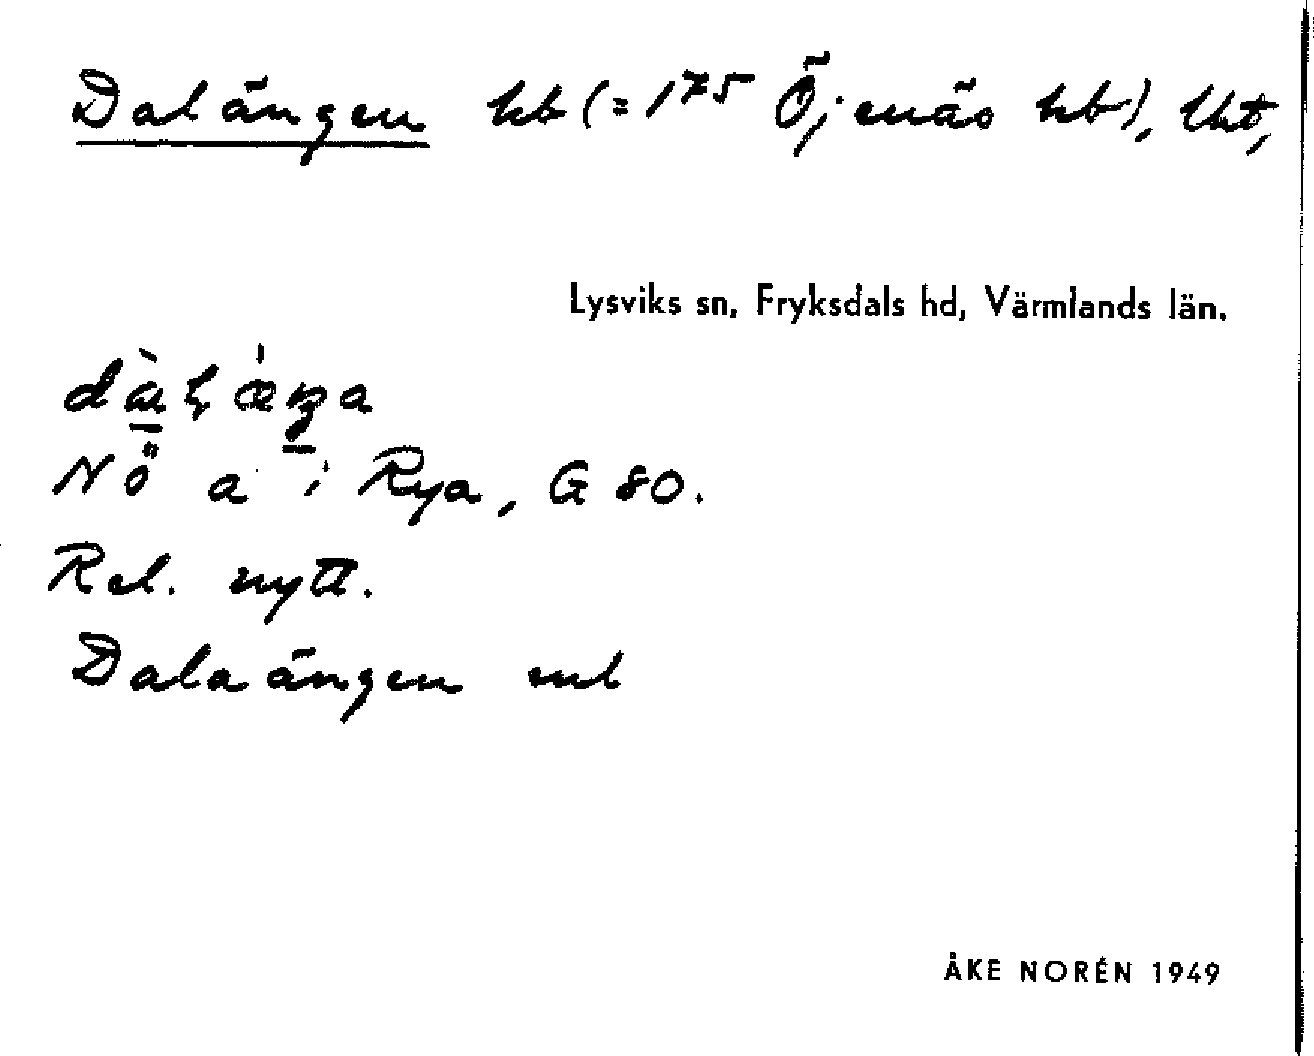 Dalängen hb (= 1⁷⁵ Öjenäs hb), Uht,
Lysviks sn, Fryksdals hd, Värmlands län.
NÖ a i Rya, G 80.
Rel. nytt.
Dalaängen ml
ÅKE NORÉN 1949